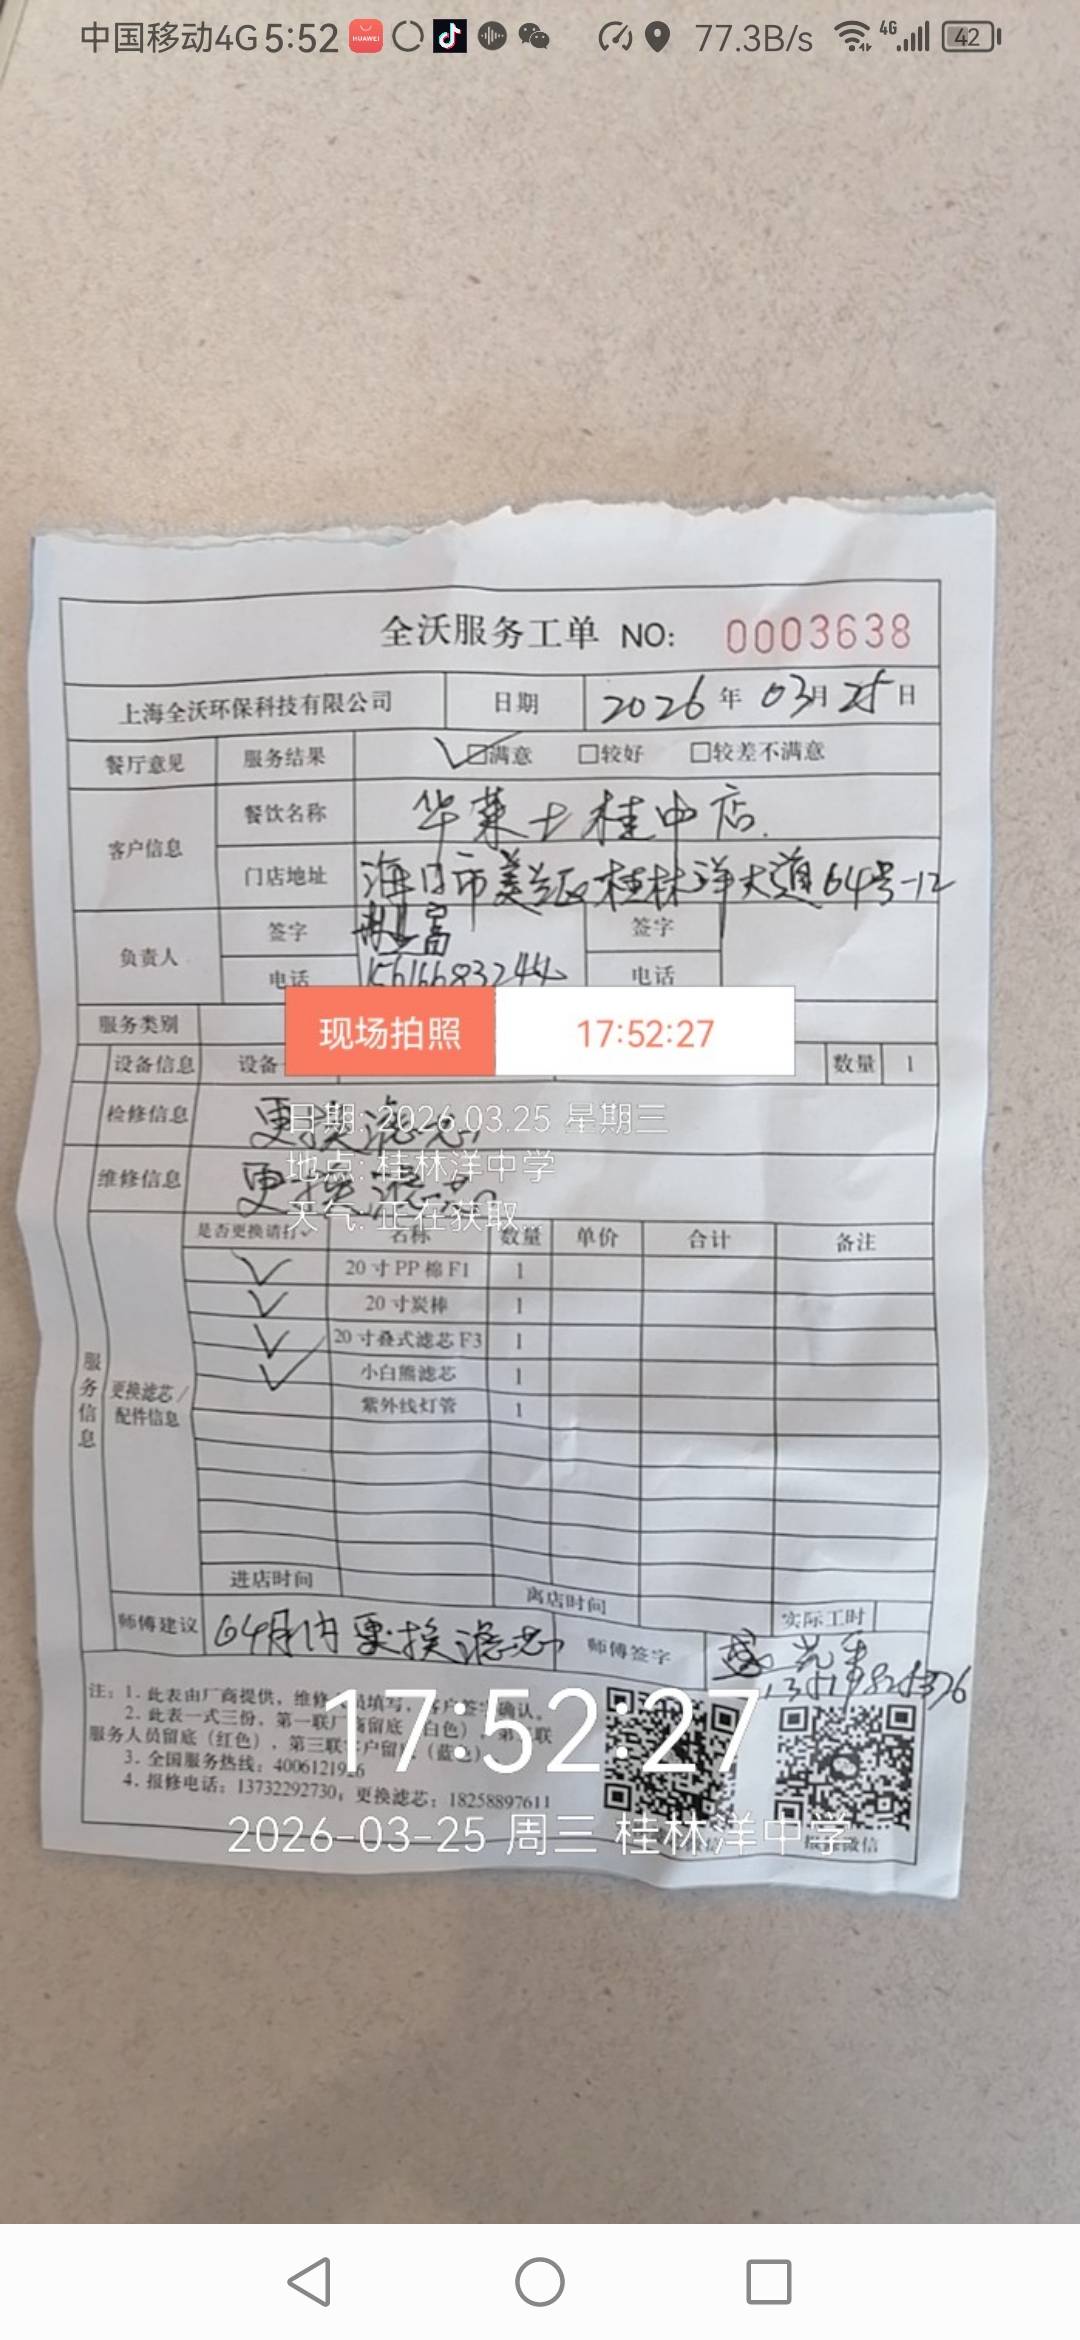 中国移动4G 5:52 HUAWEI 77.3B/s 4G 42
全沃服务工单 NO: 0003638
上海全沃环保科技有限公司 日期 2026年03月25日
餐厅意见 服务结果 ☑满意 □较好 □较差不满意
客户信息 餐饮名称 华莱士桂中店.
门店地址 海口市美兰区桂林洋大道64号-12
负责人 签字 签字
电话 15616683244 电话
服务类别
现场拍照 17:52:27
设备信息 设备 数量 1
检修信息 更换滤芯
日期: 2026.03.25 星期三
地点: 桂林洋中学
维修信息 更换滤芯
天气: 正在获取...
是否更换请打✓ 名称 数量 单价 合计 备注
✓ 20寸PP棉F1 1
✓ 20寸炭棒 1
✓ 20寸叠式滤芯F3 1
✓ 小白熊滤芯 1
紫外线灯管 1
服务信息
更换滤芯/
配件信息
进店时间 离店时间 实际工时
师傅建议 6个月内更换滤芯 师傅签字
注：1. 此表由厂商提供，维修 员填写，客户签字确认。
2. 此表一式三份，第一联厂商留底（白色），第二联
服务人员留底（红色），第三联客户留底（蓝色）
3. 全国服务热线：4006121926
4. 报修电话：13732292730；更换滤芯：18258897611
17:52:27
2026-03-25 周三 桂林洋中学
微信